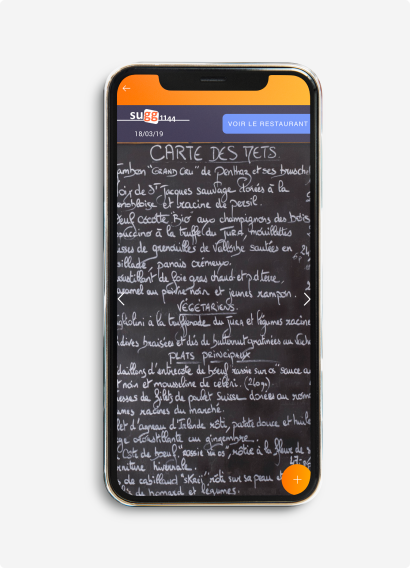 sugg1144
18/03/19
VOIR LE RESTAURANT
CARTE DES METS
ambon "GRAND CRU" de Penthaz et ses bruschet
oix de St Jacques sauvage dorées à la
et racine de persil.
Oeuf cocotte Bio aux champignons des bois
puccino à la truffe du Jura, mouillettes
isses de grenouilles de Vallorbe sautées en
sillade, panais crémeux.
oustillant de foie gras chaud et p.d.terre,
aramel au poivre noir et jeunes rampon.
VÉGÉTARIENS
à la truffenade du Jura et légumes racine
dives braisées et dés de butternut gratinées au
PLATS PRINCIPAUX
daillons d'entrecôte de boeuf rassie sur os sauce au
t noir et mousseline de céleri. (240g)
esses de filets de poulet Suisse dorées au
mes racines du marché.
let d'agneau d'Islande rôti, patate douce et huile
ge croustillante au gingembre.
Côte de boeuf, "RASSIE SUR OS", rôtie à la fleur de s
rniture hivernale.
de cabillaud "Skrei" rôti sur sa peau et
de homard et légumes.
+